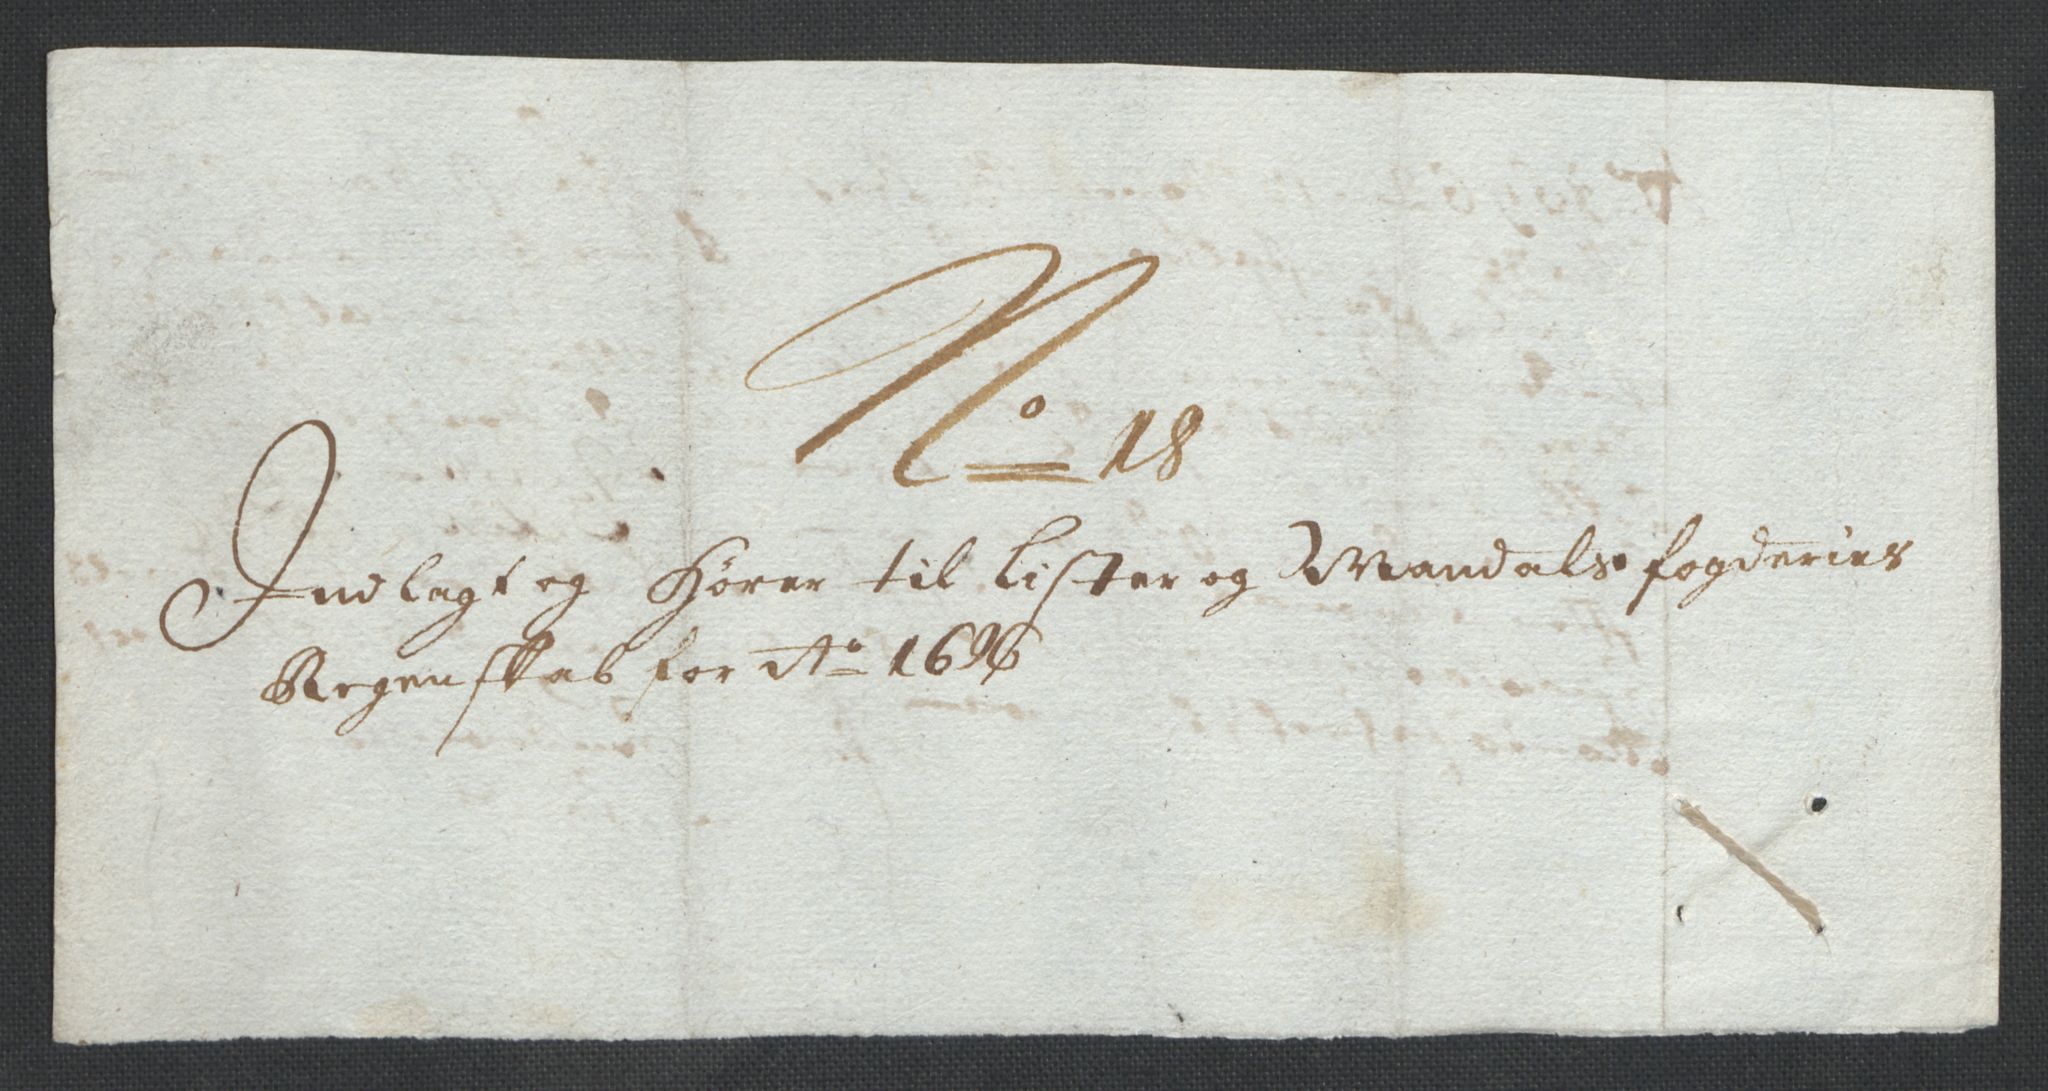 No 18
Indlagt og hörer til Lister og Mandals fogderies
Regenskab for Ao 1696